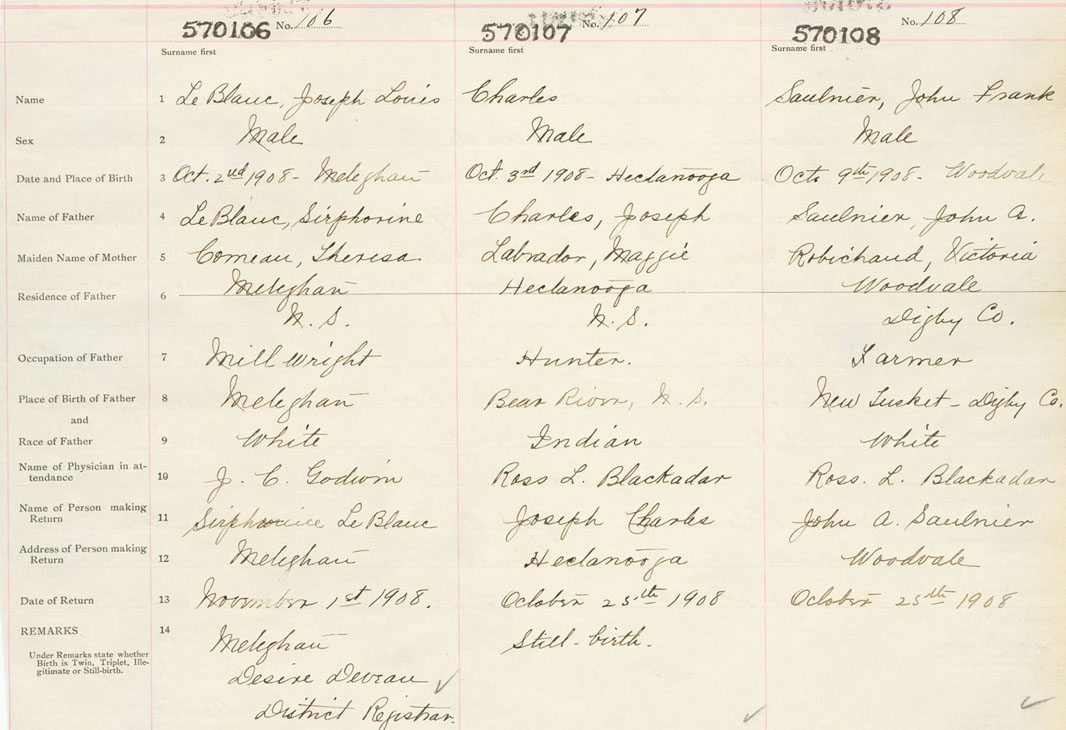 570106 No. 106 570107 No. 107 570108 No. 108
Surname first Surname first Surname first
Name 1 Le Blanc, Joseph Louis Charles Saulnier, John Frank
Sex 2 Male Male Male
Date and Place of Birth 3 Oct. 2nd 1908 - Meteghan Oct. 3rd 1908 - Hectanooga Oct. 9th 1908. Woodvale
Name of Father 4 Le Blanc, Sirphorine Charles, Joseph Saulnier, John A.
Maiden Name of Mother 5 Comeau, Theresa Labrador, Maggie Robichaud, Victoria
Residence of Father 6 Meteghan Hectanooga Woodvale
N. S. N. S. Digby Co.
Occupation of Father 7 Mill wright Hunter. Farmer
Place of Birth of Father 8 Meteghan Bear River, N. S. New Tusket - Digby Co.
and
Race of Father 9 White Indian White
Name of Physician in at-
tendance 10 J. C. Godwin Ross L. Blackadar Ross. L. Blackadar
Name of Person making
Return 11 Sirphorine Le Blanc Joseph Charles John A. Saulnier
Address of Person making
Return 12 Meteghan Hectanooga Woodvale
Date of Return 13 November 1st 1908. October 25th 1908 October 25th 1908
REMARKS 14 Meteghan Still-birth.
Under Remarks state whether
Birth is Twin, Triplet, Ille-
gitimate or Still-birth.
Desire Deveau
District Registrar.